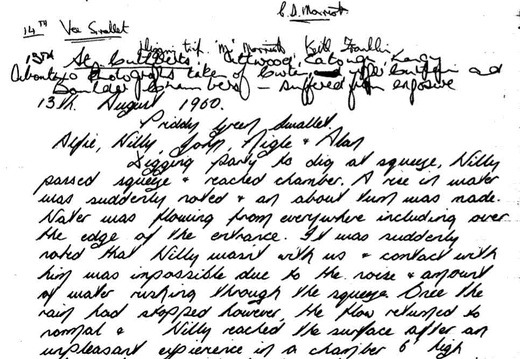 C.D. Marriott
14TH Vee Swallet
13TH St. Cuthberts
photographs taken of
Chambers — suffered from exposure
13th. August 1960.
Priddy Green Swallet.
Alfie, Willy, John, Nigle & Alan
Digging party to dig at squeeze, Willy
passed squeeze & reached chamber. A rise in water
was suddenly noted & an about turn was made.
Water was flowing from everywhere including over
the edge of the entrance. It was suddenly
noted that Willy wasn't with us & contact with
him was impossible due to the noise & amount
of water rushing through the squeeze. Once the
rain had stopped however, the flow returned to
normal & Willy reached the surface after an
unpleasant experience in a chamber 6' high